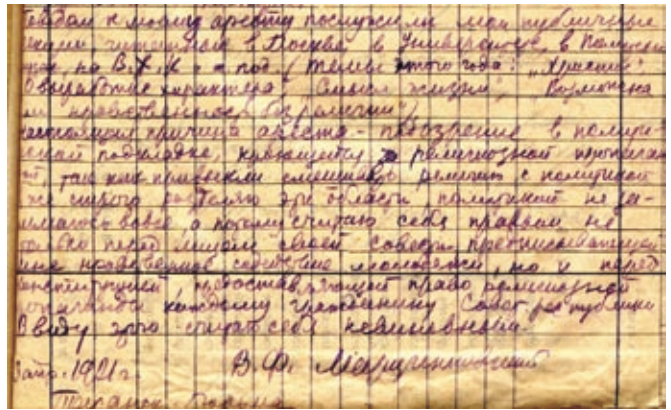 к моему аресту послужили мои публичные
читаемые в Москве в Университете, в Политехни-
на В.Х.К. и т. под. (темы этого года: „Христ
О выработке характера; Смысл жизни; Возможна
ли нравственность без религии")
Настоящая причина ареста - подозрение в полити-
ческой подкладке, кроющейся в религиозной
так как привыкли смешивать религию с политикой
эти области политикой не за-
нимаюсь вовсе, а потому считаю себя правым не
только перед лицом своей совести, предписывающей
мне нравственное содействие молодежи, но и перед
конституцией, предоставляющей право религиозной
пропаганды каждому гражданину Совет. республики
Ввиду этого считаю себя невиновным.
1921 г. В.Ф. Марцинковский
Таганск. тюрьма